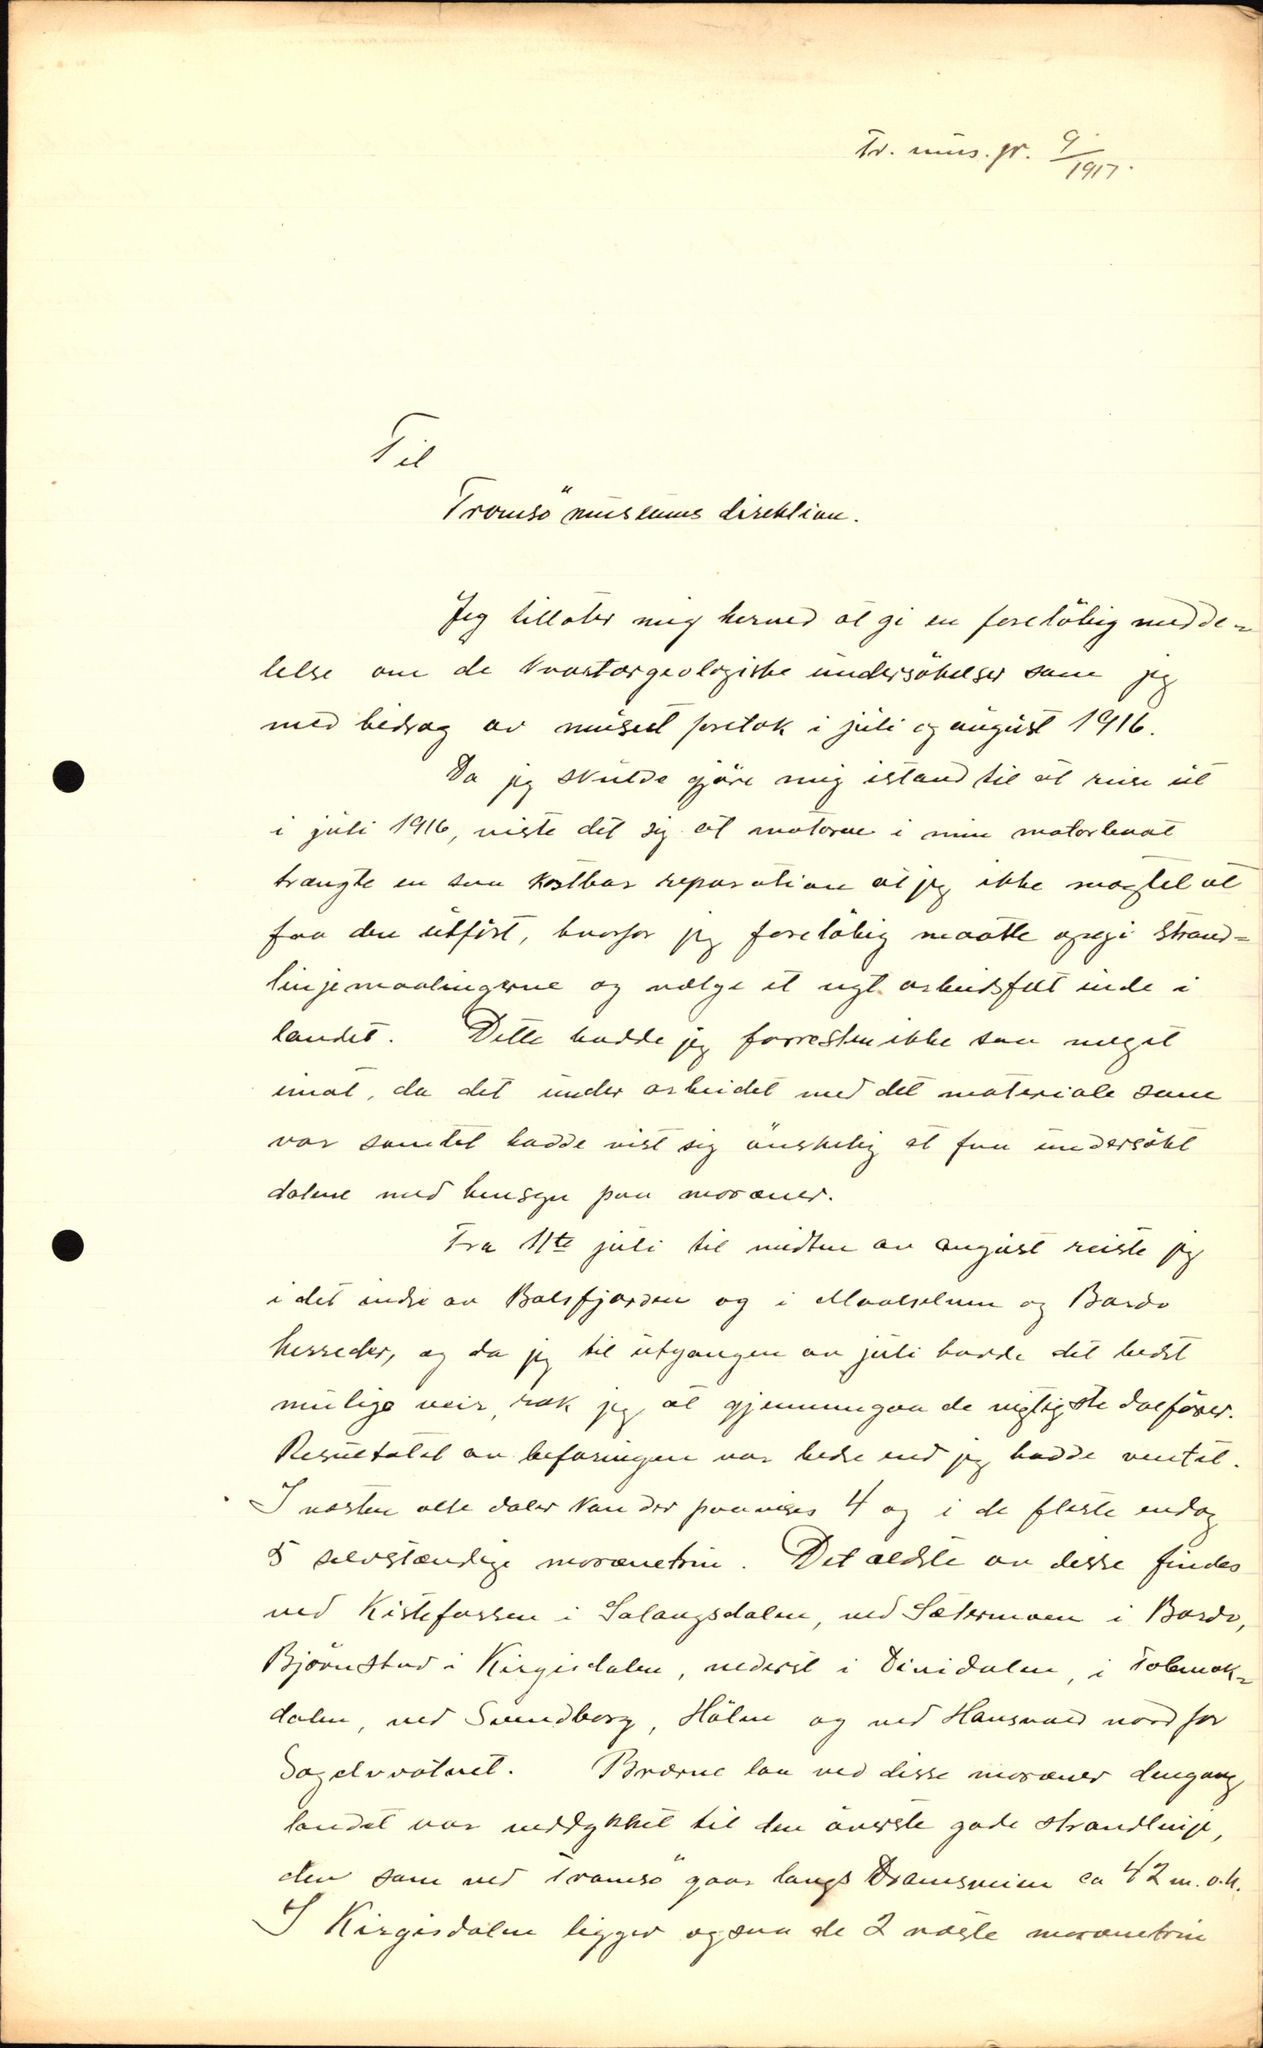 Tr. mus. jr. 9/1917.
Til
Tromsö museums direktion.
Jeg tillater mig herved at gi en foreløbig medde-
lelse om de kvartærgeologiske undersökelser som jeg
med bidrag av museet foretok i juli og august 1916.
Da jeg skulde gjøre mig istand til at reise ut
i juli 1916, viste det sig at motoren i min motorbaat
trængte en saa kostbar reparation at jeg ikke magtet at
faa den utført, hvorfor jeg foreløbig maatte opgi strand-
linjemaalingerne og vælge et nyt arbeidsfelt inde i
landet. Dette hadde jeg forresten ikke saa meget
imot, da det under arbeidet med det materiale som
var samlet hadde vist sig ønskelig at faa undersøkt
dalene med hensyn paa moræner.
Fra 11te juli til midten av august reiste jeg
i det indre av Balsfjorden og i Maalselven og Bardo
herreder, og da jeg til utgangen av juli hadde det bedst
mulige veir, rak jeg at gjennemgaa de vigtigste dalfører.
Resultatet av befaringen var bedre end jeg hadde ventet.
I næsten alle daler kan der paavises 4 og i de fleste endog
5 selvstændige morænetrin. Det ældste av disse findes
ved Kistefossen i Salangsdalen, ved Sætermoen i Bardo,
Bjørnstad i Kirgisdalen, nederst i Dividalen, i Tabmok-
dalen, ved Svendborg, Hølen og ved Hansvold nord for
Sagelvvatnet. Bræerne laa ved disse moræner dengang
landet var neddykket til den øverste gode strandlinje,
den som ved Tromsö gaar langs Dramsveien ca 42 m.o.h.
I Kirgisdalen ligger ogsaa de 2 næste morænetrin